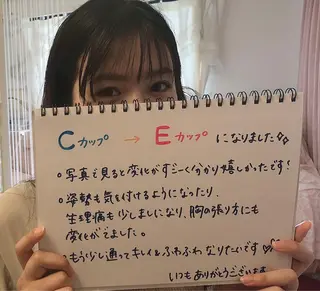 Cカップ → Eカップ になりました
○写真で見ると変化がすごーく分かり嬉しかったです!
○姿勢も気を付けるようになったり、
生理痛も少しましになり、胸の張り方にも
変化がでました。
○もう少し通ってキレイ&ふわふわ なりたいです
いつもありがとうございます